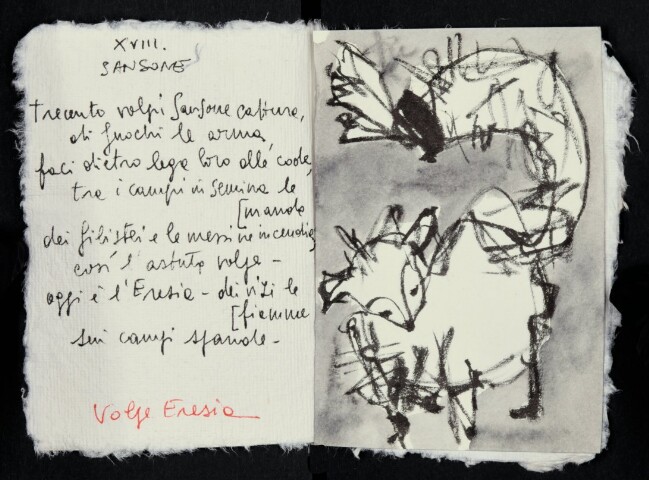 XVIII.
SANSONE
trecento volpi Sansone cattura,
di fuochi le arma,
faci dietro lega loro alle code,
tra i campi in semina le
[manda
dei filistei e le messi ne incendia
così l'astuta volpe -
oggi è l'Eresia - dei vizi le
[fiamme
sui campi spande -
Volpe Eresia